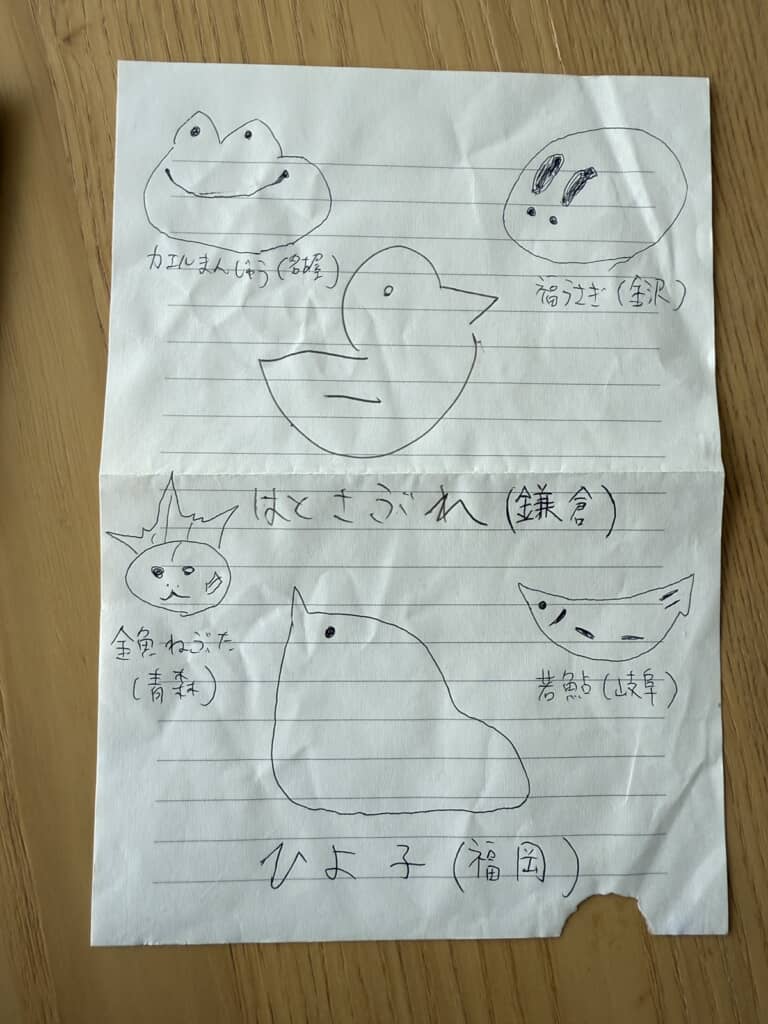 カエルまんじゅう(名古屋)
福うさぎ(金沢)
はとさぶれ(鎌倉)
金魚ねぶた
(青森)
若鮎(岐阜)
ひよ子(福岡)